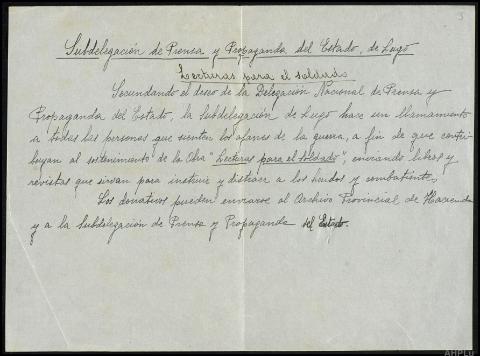 3
Subdelegación de Prensa y Propaganda del Estado, de Lugo
Lecturas para el soldado
Secundando el deseo de la Delegación Nacional de Prensa y
Propaganda del Estado, la Subdelegación de Lugo hace un llamamiento
a todas las personas que sienten los afanes de la guerra, a fin de que contri-
buyan al sostenimiento de la Obra "Lecturas para el soldado", enviando libros y
revistas que sirvan para instruir y distraer a los heridos y combatientes.
Los donativos pueden enviarse al Archivo Provincial de Hacienda
y a la Subdelegación de Prensa y Propaganda del Estado.
AHPLU